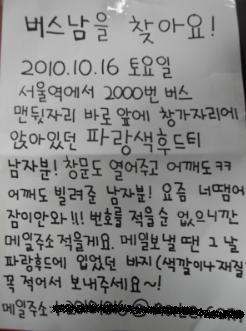 버스남을 찾아요!
2010.10.16 토요일
서울역에서 2000번 버스
맨뒷자리 바로 앞에 창가자리에
앉아있던 파랑색후드티
남자분! 창문도 열어주고 어깨도ㅋㅋ
어깨도 빌려준 남자분! 요즘 너땜에
잠이안와!!! 번호를 적을순 없으니깐
메일주소적을게요. 메일보낼 땐 그 날
파랑후드에 입었던 바지(색깔이나 재질)
꼭 적어서 보내주세요~!
메일주소